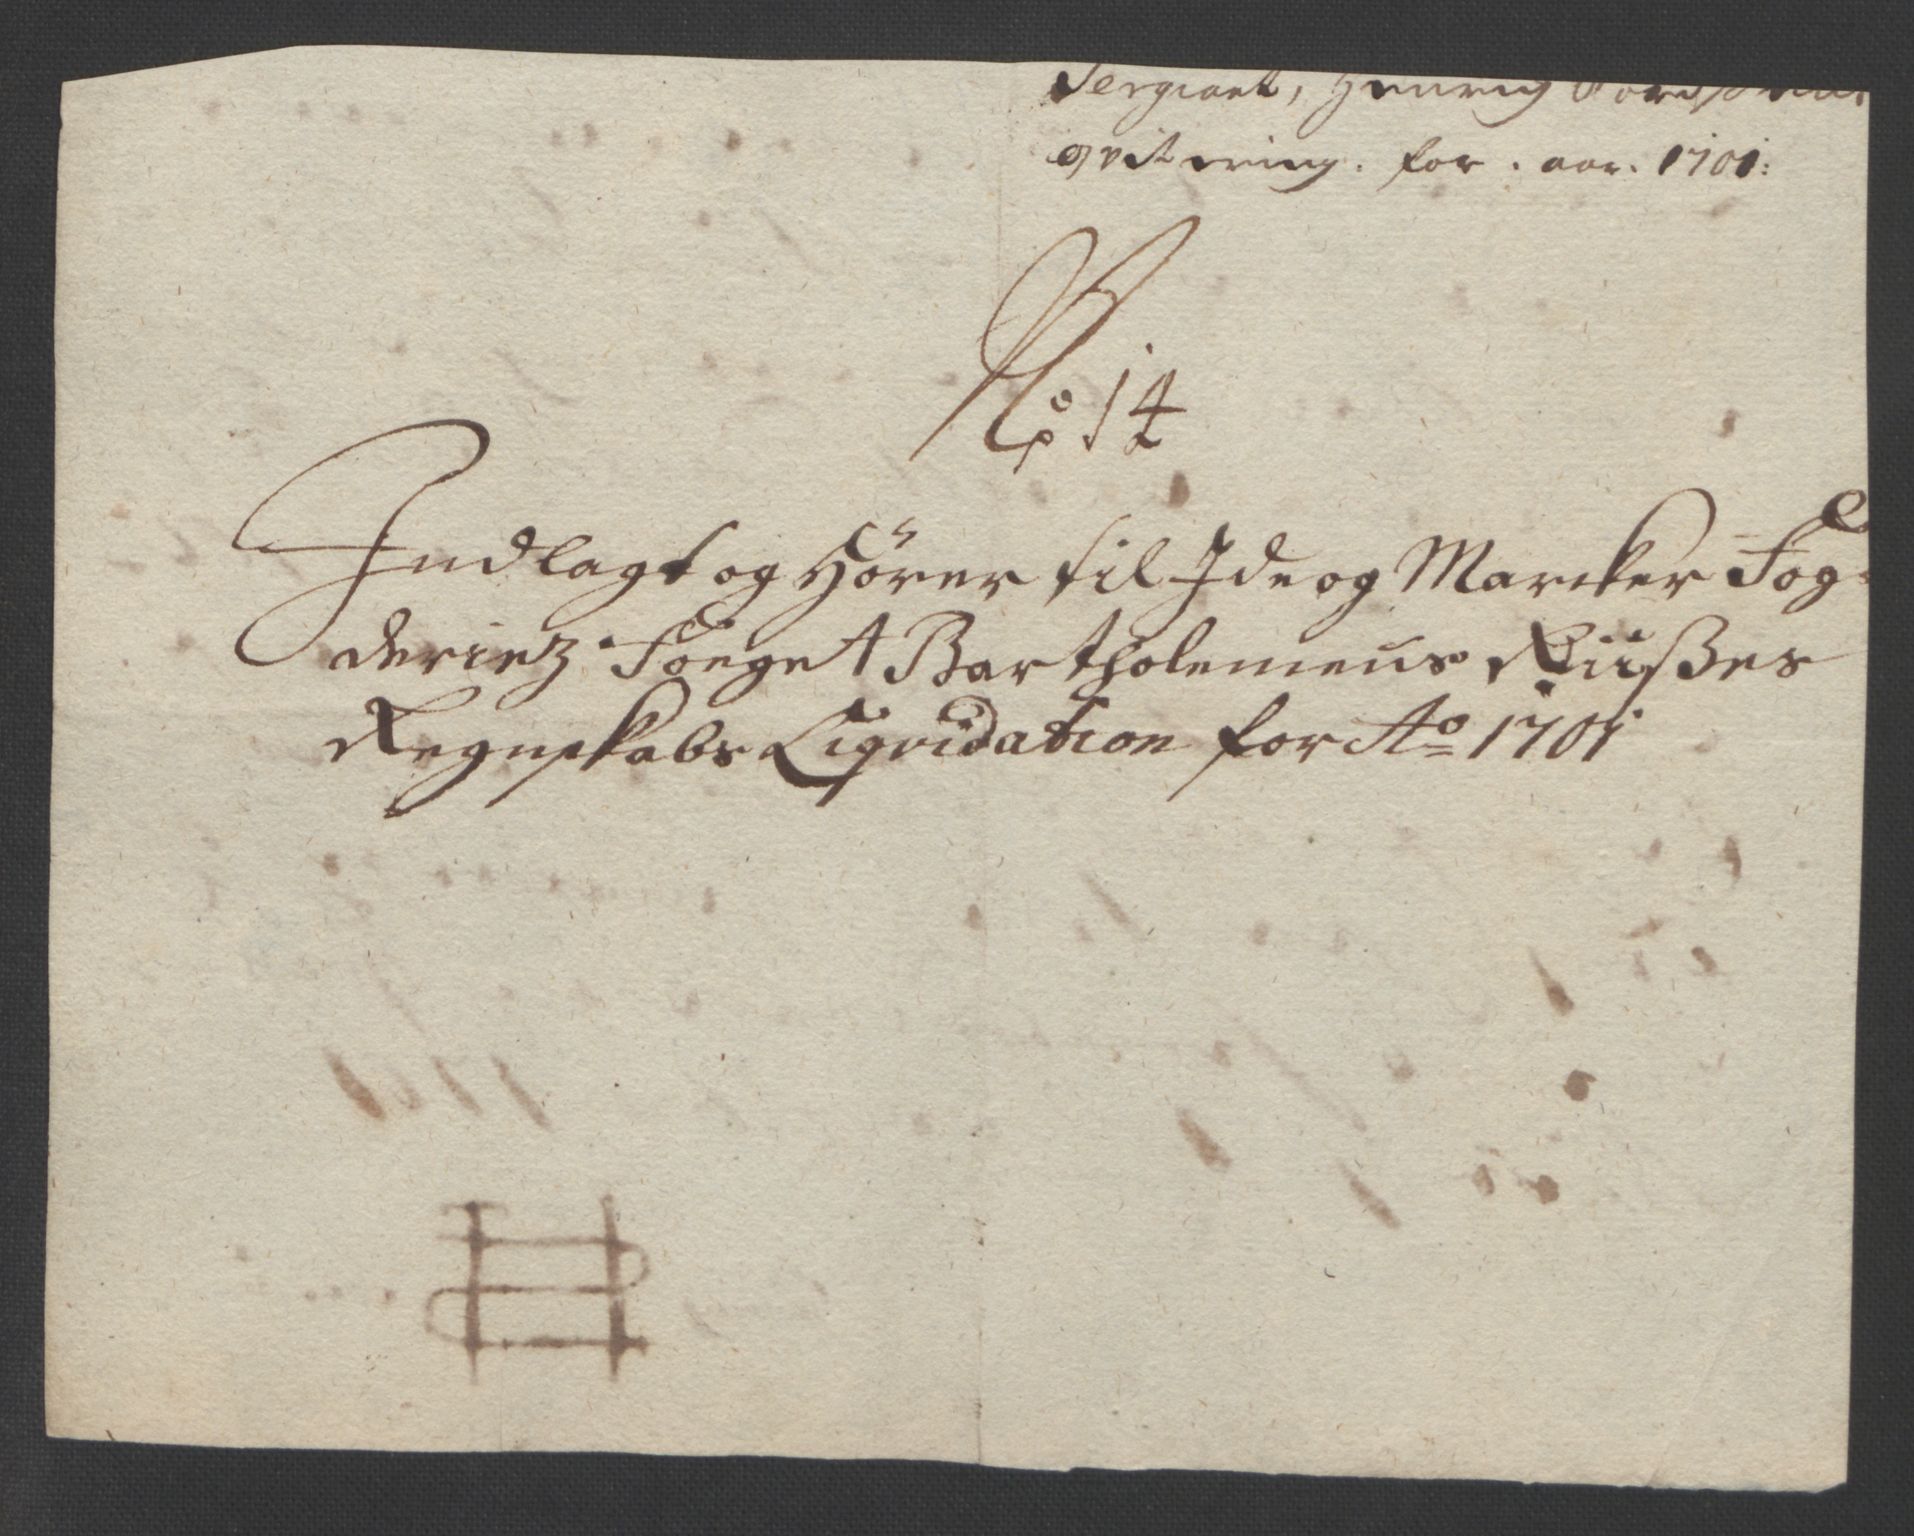 Sergiant, Henrich
qvitering. for. aar. 1701:
No 14
Indlagt og Hører til Ide og Marcker Fog-
deriez Foeget Bartholemeus Rüsses
Regnskabs Liqvidation for Ao 1701